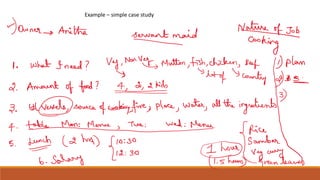 Example – simple case study
→ Owner → Anitha
servant maid
Nature of Job
Cooking
1. What I need? Veg, Non Veg → Mutton, fish, chicken,
list of country
1) Plan
2)
3)
2. Amount of food? 4, 2, 2 kids
3. Vessels, source of cooking fire, place, water, all the ingredients
4. table Mon: Menu, Tue: Wed: Menu
5. Lunch (2 hrs) 10:30
12:30
1 hour
(1.5 hours)
Rice
Sambar
Veg curry
6. Salary